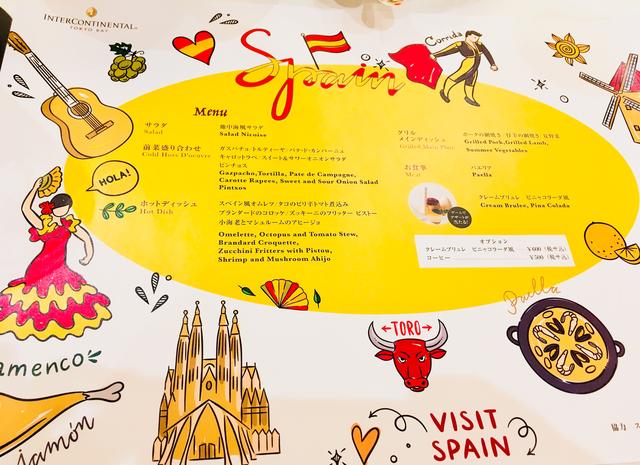 INTERCONTINENTAL
TOKYO BAY
Spain
Corrida
Menu
サラダ
Salad
地中海風サラダ
Salad Nicoise
前菜盛り合わせ
Cold Hors D'oeuvre
ガスパチョ
トルティーヤ・パテ・ド・カンパーニュ
キャロットラペ・スイート&サワーオニオンサラダ
ピンチョス
Gazpacho,Tortilla, Pate de Campagne,
Carotte Rapees, Sweet and Sour Onion Salad
Pintxos
HOLA!
ホットディッシュ
Hot Dish
スペイン風オムレツ
タコのピリ辛トマト煮込み
ブランダードのコロッケ
ズッキーニのフリッター ピストー
小海老とマッシュルームのアヒージョ
Omelette, Octopus and Tomato Stew,
Brandard Croquette,
Zucchini Fritters with Pistou,
Shrimp and Mushroom Ahijo
グリル
メインディッシュ
Grilled Main Plate
Grilled Pork,Grilled Lamb,
Summer Vegetables
お食事
Meal
パエリア
Paella
クレームブリュレ
ピニャコラーダ風
Cream Brulee, Pina Colada
オプション
クレームブリュレ ピニャコラーダ風 ¥600(税サ込)
コーヒー ¥500(税サ込)
Paella
TORO
amenco
jamón
VISIT
SPAIN
協力